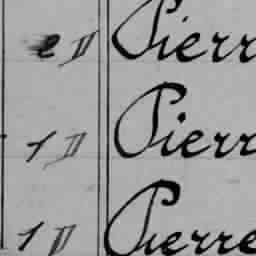 2 D Pierr
1 D Pierr
1 D Pierre